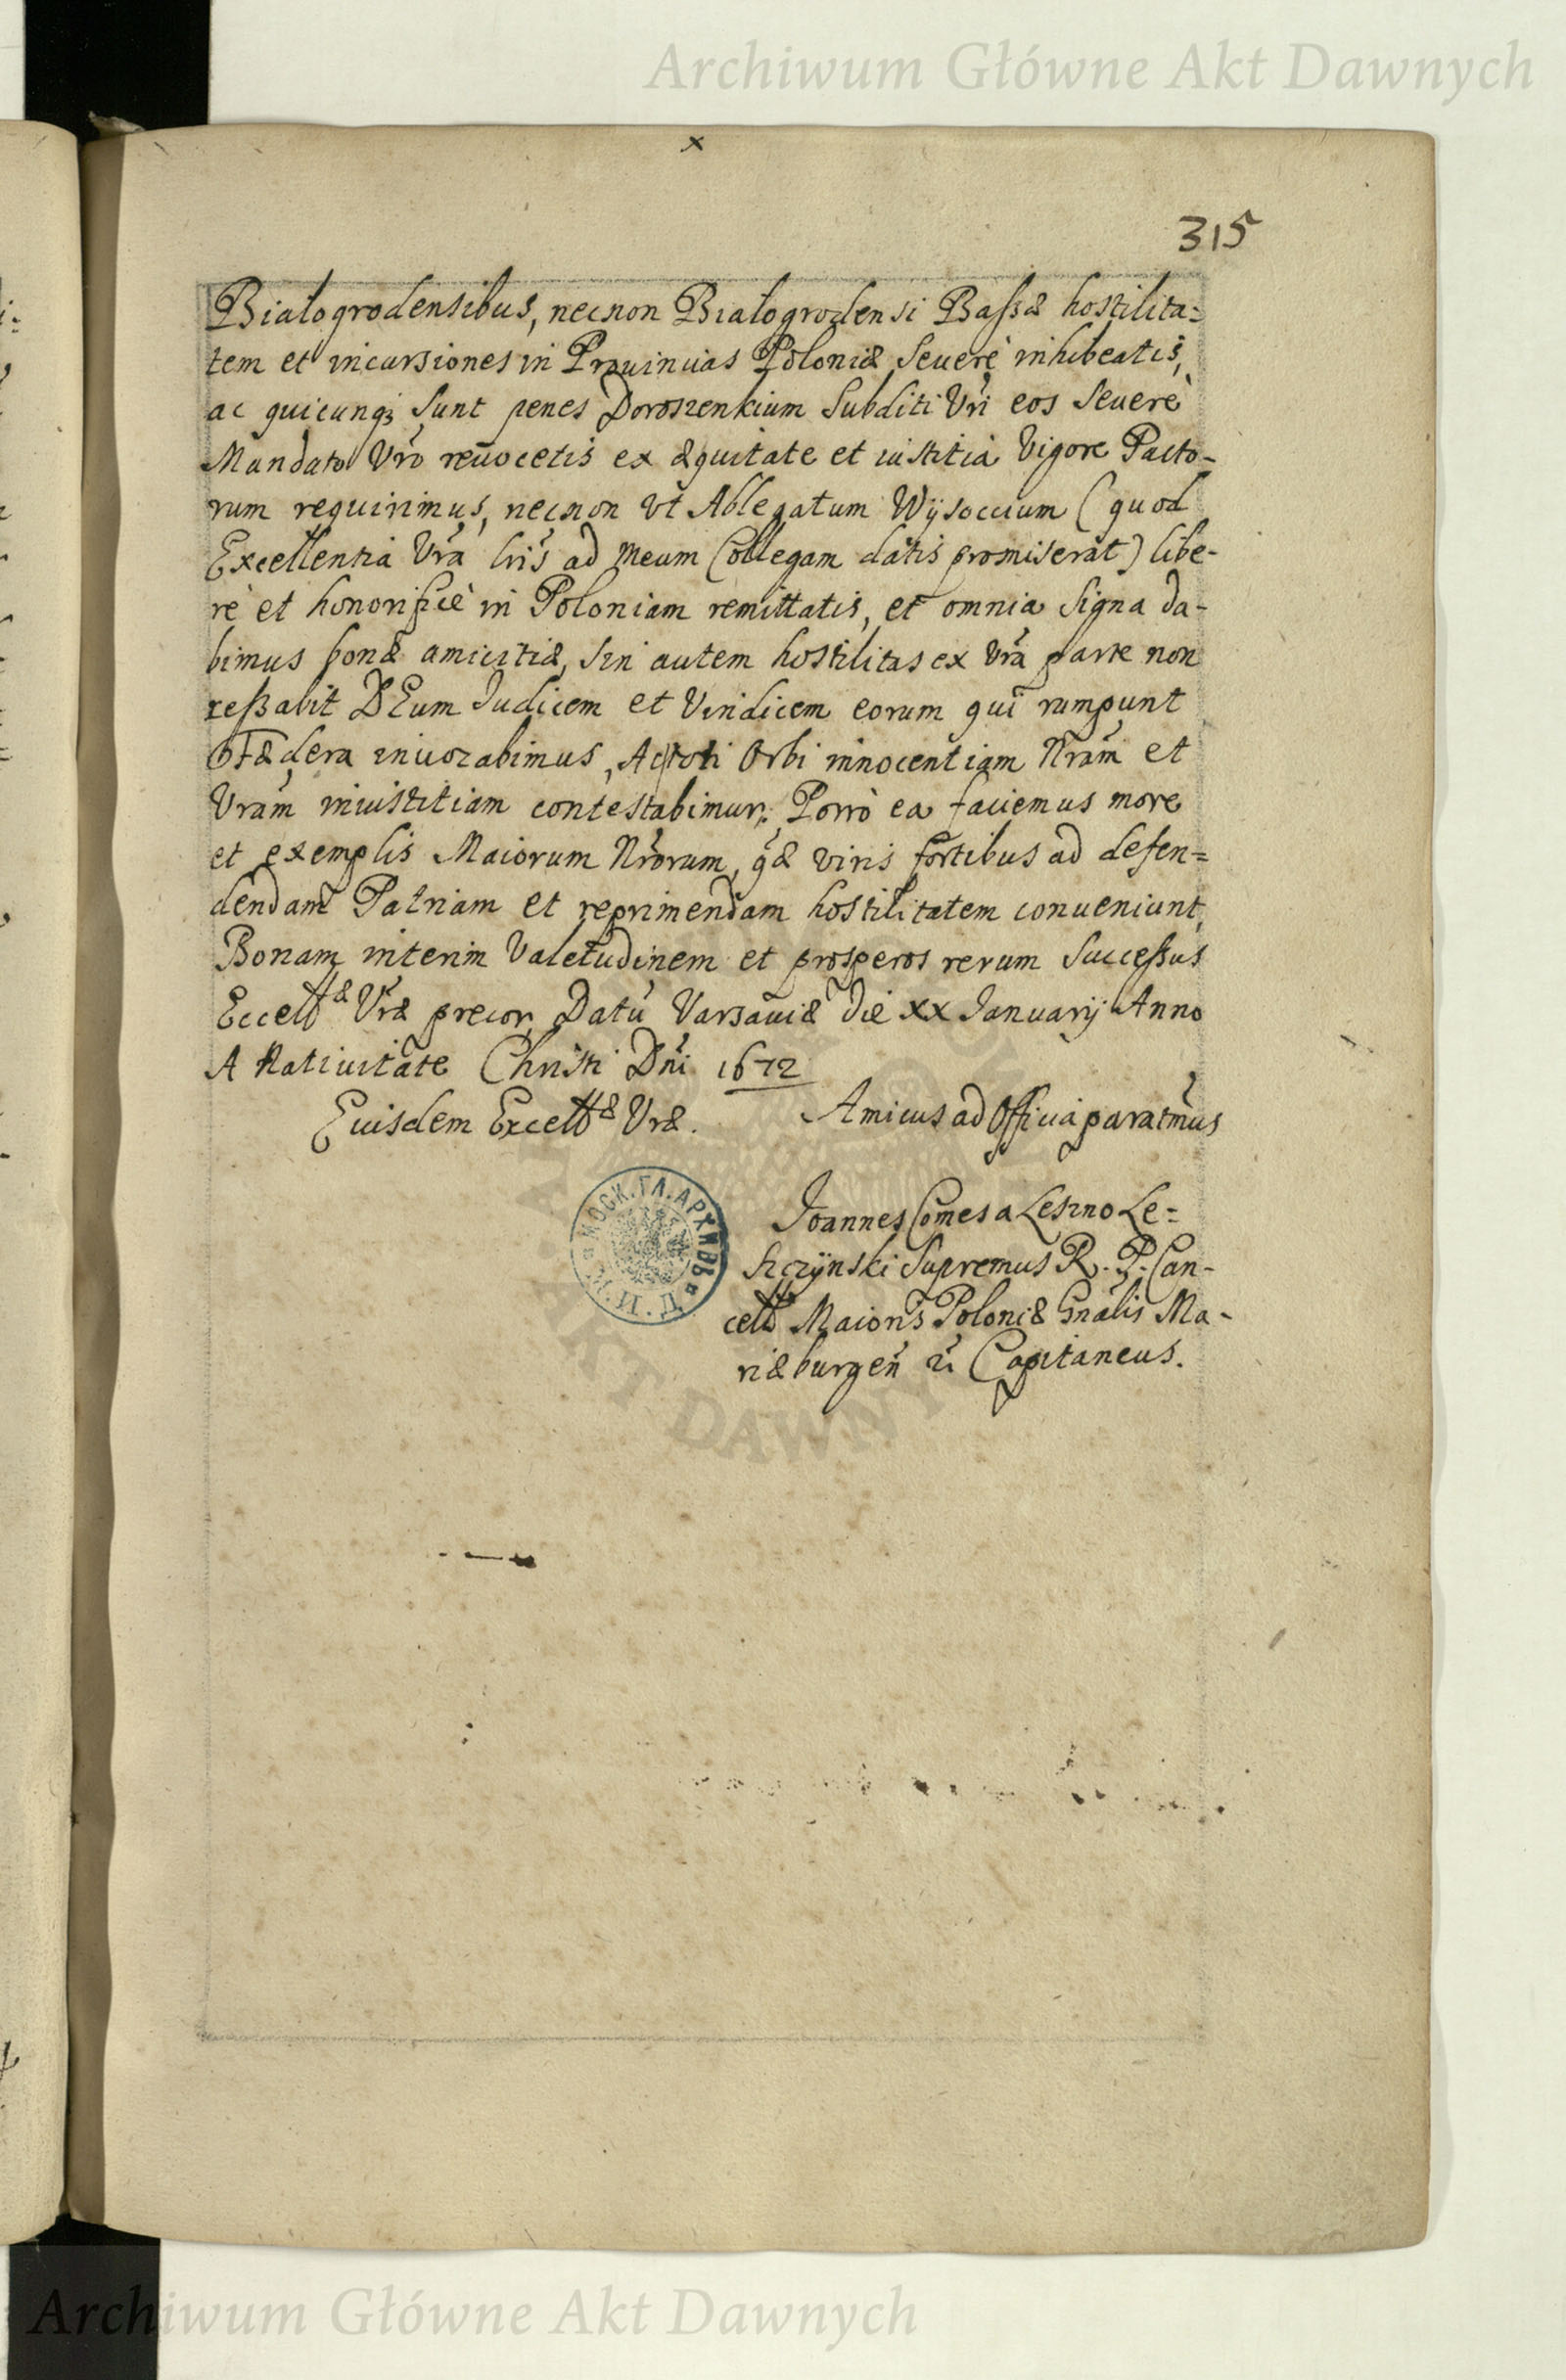 Archiwum Główne Akt Dawnych
x
315
Białogrodensibus, necnon Białogrodensi Bassæ hostilita=
tem et incursiones in Prouincias Poloniæ Seuerè inhibeatis,
ac quicunq; sunt penes Doroszenkium Subditi Vri eos Seuerè
Mandato Vro reuocetis ex æquitate et iustitia Vigore Pacto-
rum requirimus, necnon vt Ablegatum Wÿsoccium (quod
Excellentia Vra lris ad meum Collegam datis promiserat) libe-
rè et honorificè in Poloniam remittatis, et omnia Signa da-
bimus bonæ amicitiæ, Sin autem hostilitas ex Vra parte non
cessabit DEum Iudicem et Vindicem eorum qui rumpunt
Fædera inuocabimus, Ac toti Orbi innocentiam Nram et
Vram iniustitiam contestabimur, Porrò ea faciemus more
et exemplis Maiorum Nrorum, qæ viris fortibus ad defen=
dendam Patriam et reprimendam hostilitatem conueniunt,
Bonam interim Valetudinem et prosperos rerum Successus
Eccellæ Vræ precor, Datu Varsauiæ die xx Ianuarij Anno
A Natiuitate Christi Dni 1672
Euisdem Excellæ Vræ. Amicus ad Officia paratmus
Ioannes Comes a Leszno Le=
szczÿnski Supremus R. P. Can-
cell Maioris Poloniæ Gnalis Ma-
riæburgen Capitaneus.
МОСК. ГЛ. АРХИВЪ
М. И. Д.
AKT DAWNY
Archiwum Główne Akt Dawnych